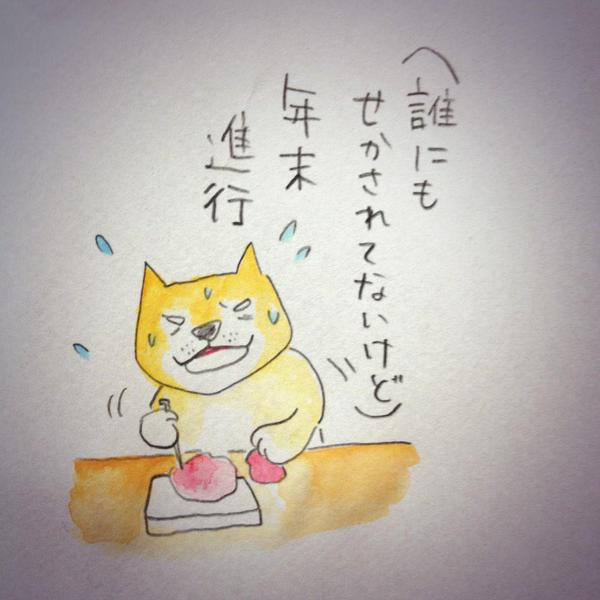 （誰にも
せかされてないけど）
年末
進行